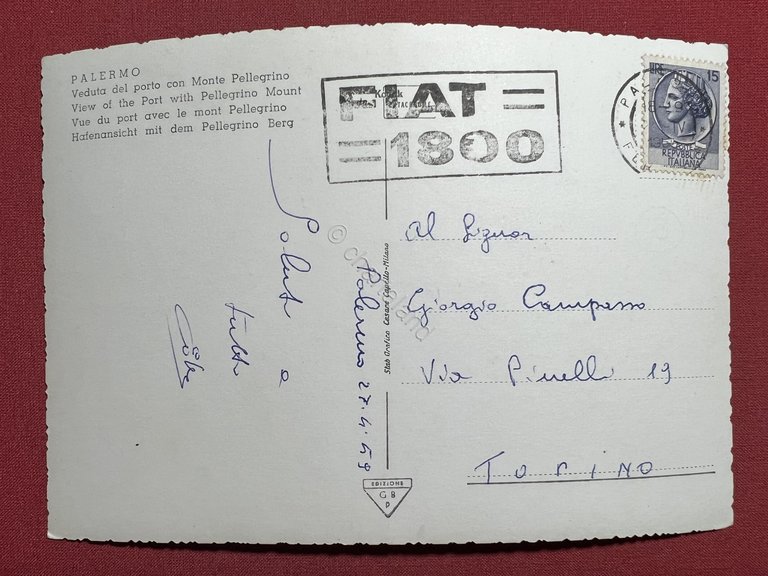 PALERMO
Veduta del porto con Monte Pellegrino
View of the Port with Pellegrino Mount
Vue du port avec le mont Pellegrino
Hafenansicht mit dem Pellegrino Berg
FIAT
1800
15
POSTE
REPVBBLICA
ITALIANA
Saluti a
tutti
Palermo 27.4.59
Stab Grafico Cesare Capello-Milano
EDIZIONE
G B
P
Al Signor
Giorgio Campasso
Via Pinelli 19
TORINO